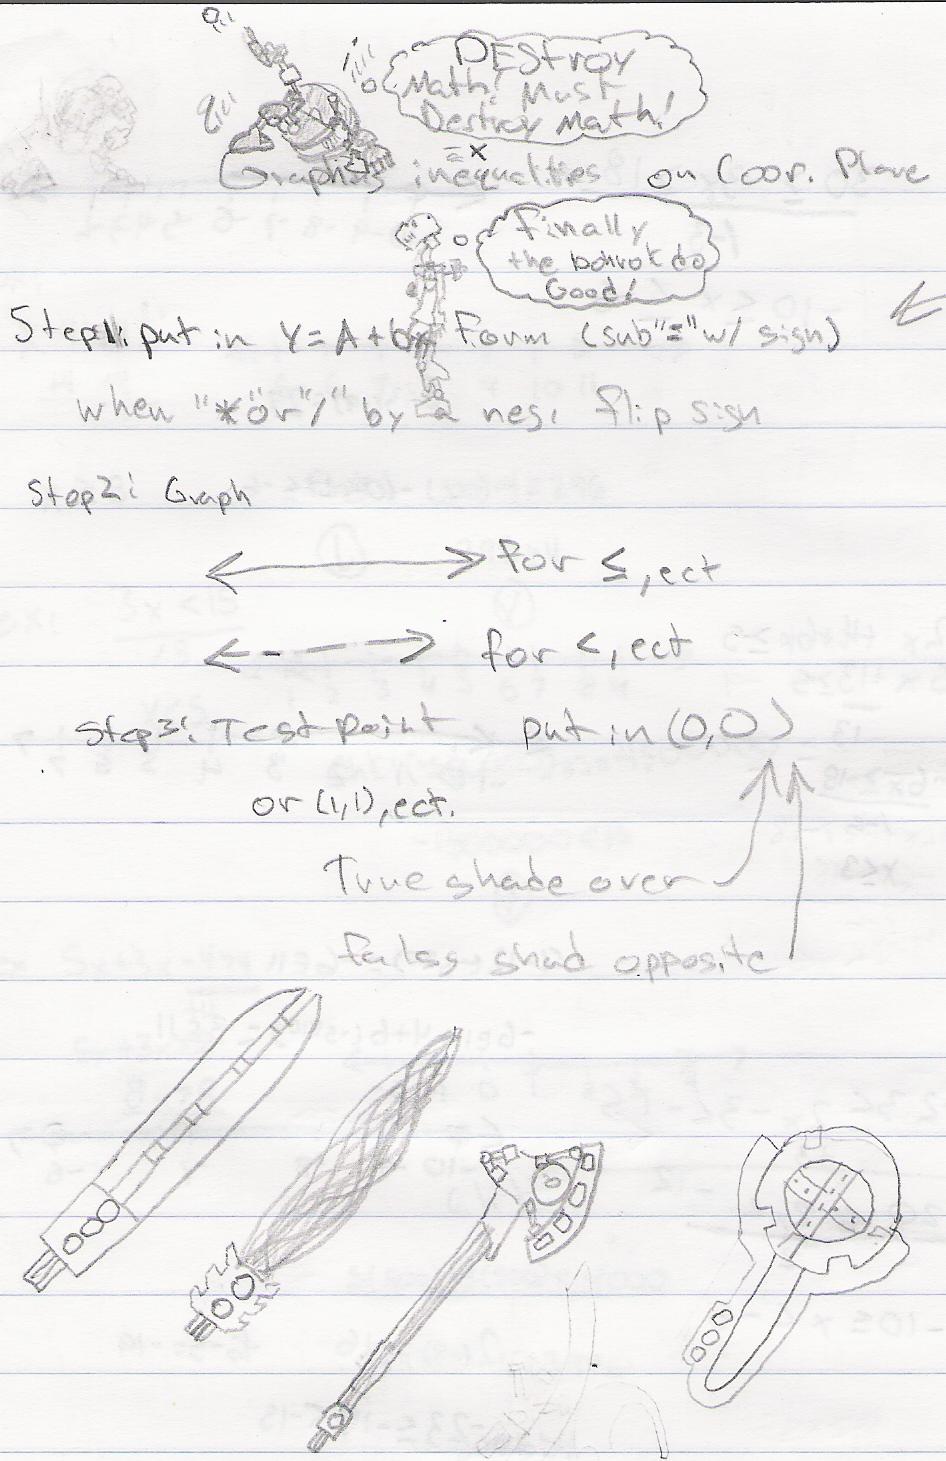 DEStroy
Math! Must
Destroy Math!
Graphing inequalities on Coor. Plane
Finally
the bohrok do
Good!
Step1: put in Y=A+bx Form (sub"="w/ sign)
when "*"or"/" by a neg, flip sign
Step2: Graph
for ≤,ect
for <,ect
Step3: Test point put in (0,0)
or (1,1),ect.
True shade over
shad opposite